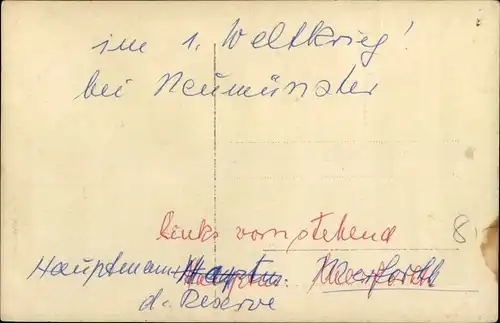 im 1. Weltkrieg!
bei Neumünster
links vornstehend
8
Hauptmann
d. Reserve